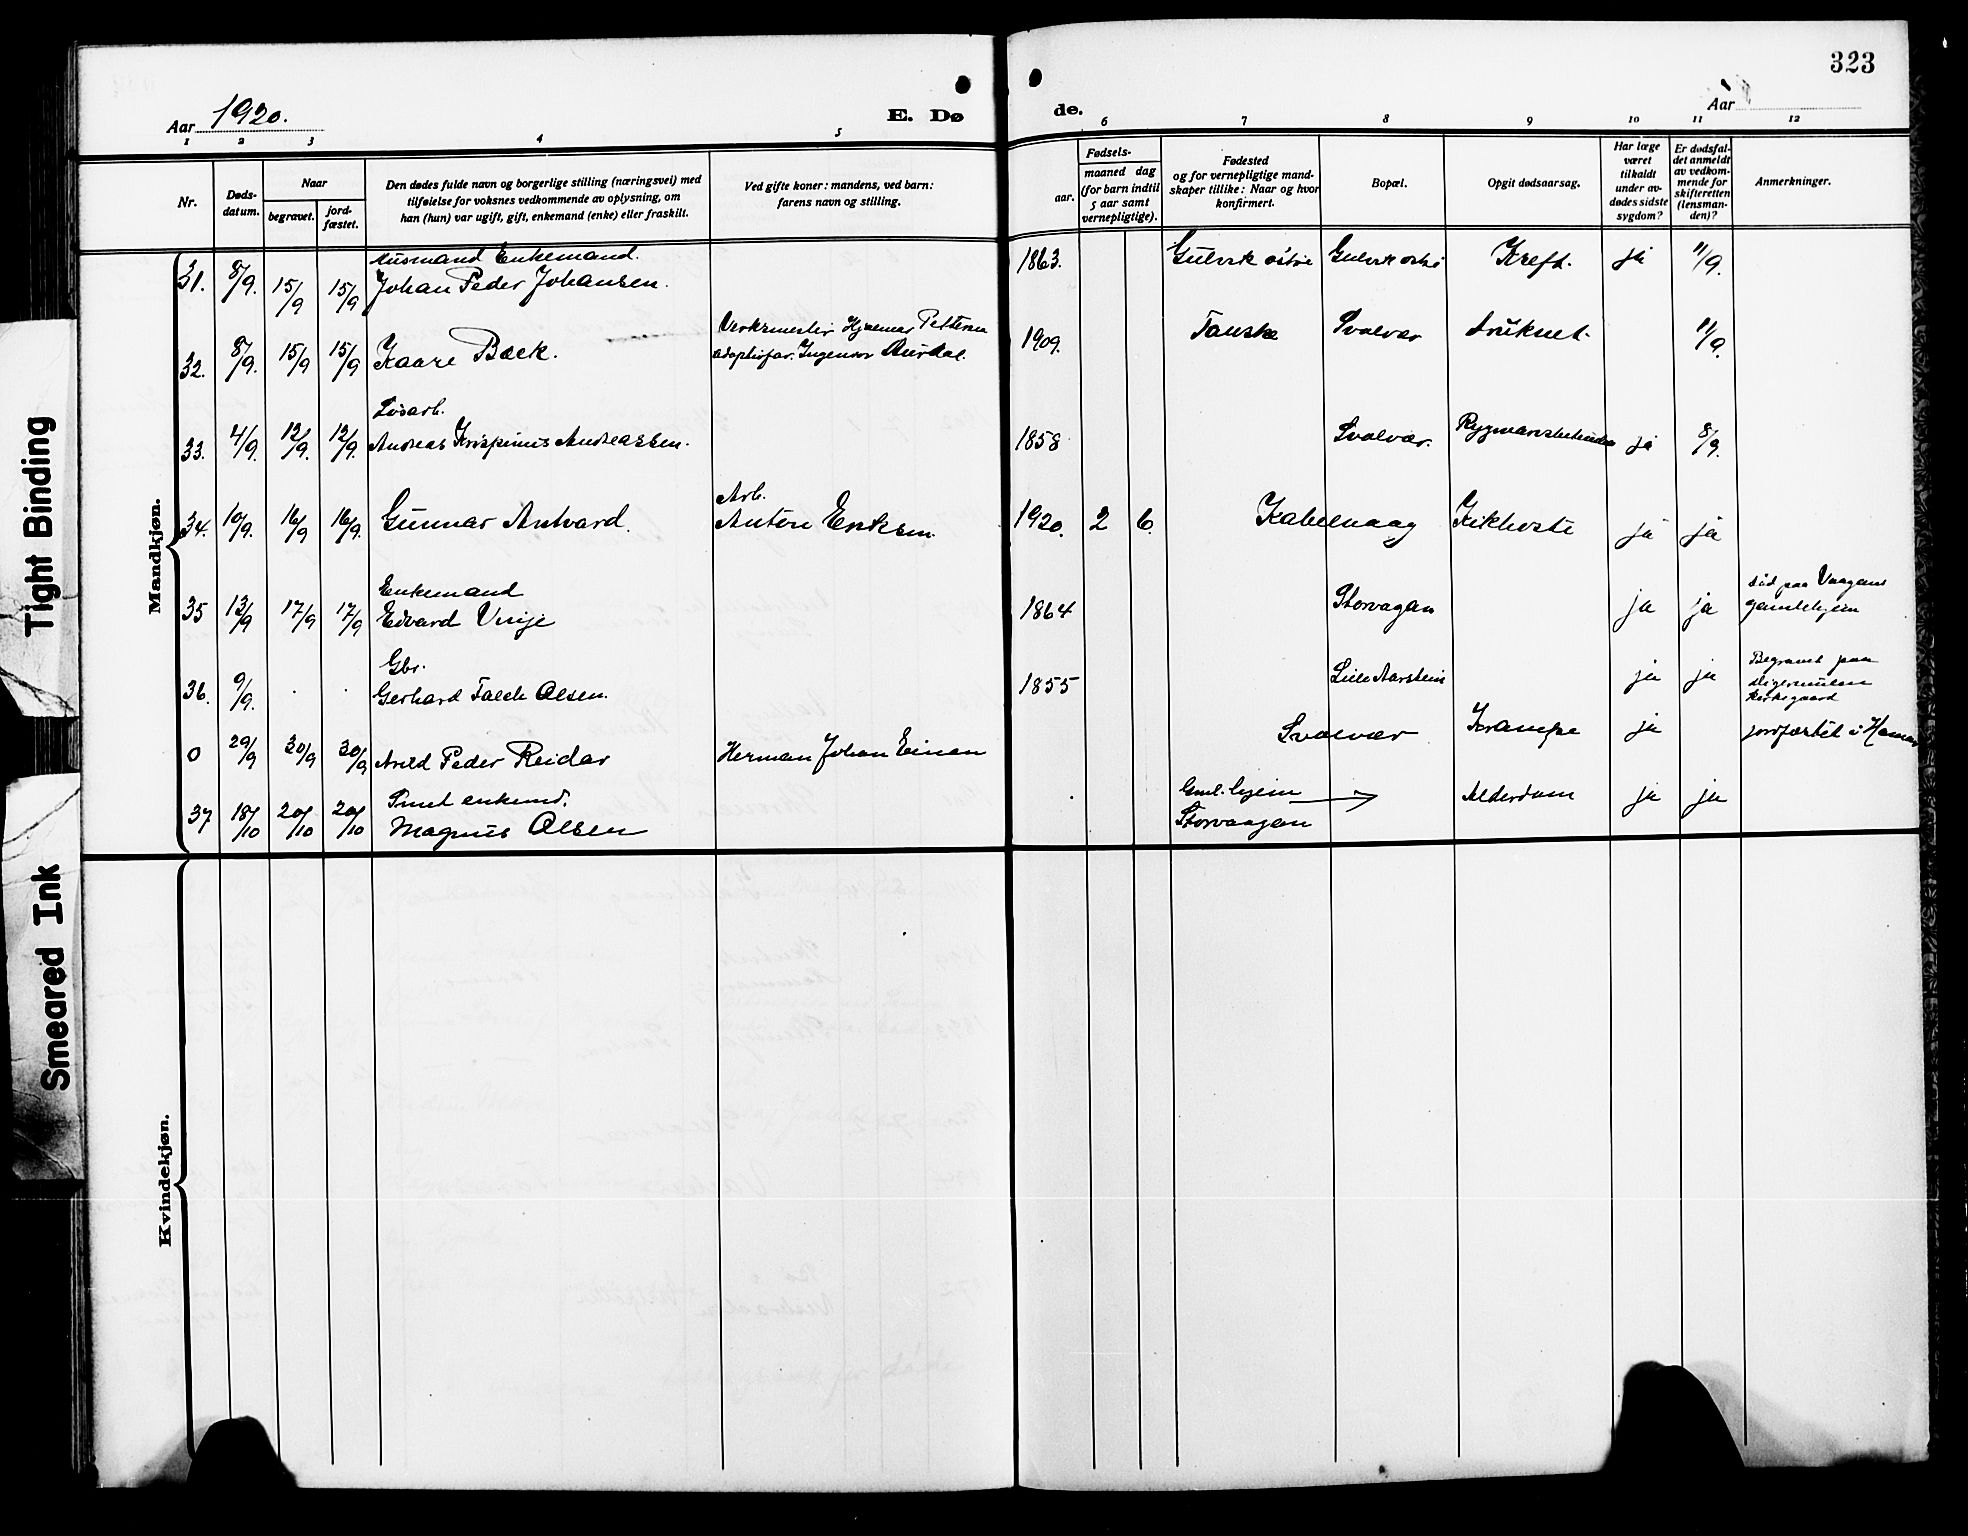 323
Aar 1920.
E. Dø
de.
Aar
1 2 3 4 5 6 7 8 9 10 11 12
Nr.
Døds-
datum.
Naar
begravet.
jord-
fæstet.
Den dødes fulde navn og borgerlige stilling (næringsvei) med
tilføielse for voksnes vedkommende av oplysning, om
han (hun) var ugift, gift, enkemand (enke) eller fraskilt.
Ved gifte koner: mandens, ved barn:
farens navn og stilling.
Fødsels-
aar.
maaned dag
(for barn indtil
5 aar samt
vernepligtige).
Fødested
og for vernepligtige mand-
skaper tillike: Naar og hvor
konfirmert.
Bopæl.
Opgit dødsaarsag.
Har læge
været
tilkaldt
under av-
dødes sidste
sygdom?
Er dødsfal-
det anmeldt
av vedkom-
mende for
skifteretten
(lensman-
den)?
Anmerkninger.
Mandkjøn.
Husmand Enkemand.
31. 8/9. 15/9 15/9 Johan Peder Johansen. 1863. Kreft. ja 11/9.
Verkmester Hjalmar
32. 8/9. 15/9 15/9 Kaare Bæck. adoptivfar. Ingeniør 1909. Svolvær druknet. 11/9.
Løsarb.
33. 4/9. 12/9. 12/9. Andreas Krispinus Andreassen. 1858 Svolvær. ja 8/9.
Arb.
34. 10/9. 16/9 16/9. Gunnar Antvard. Anton Eriksen. 1920. 2 6. Kabelvaag Kikhoste ja ja
Enkemand
35 13/9 17/9 17/9 Edvard 1864 Storvagan ja ja død paa Vaagans
gamlehjem
Gbr.
36. 9/9. Gerhard Falch Olsen. 1855 ja ja Begravet paa
Digermulen
kirkegaard
0 29/9 30/9 30/9 Arild Peder Reidar Herman Johan Einan Svolvær Krampe ja jordfæstet i
Smed enkemd.
37 18/10 20/10 20/10 Magnus Olsen Gml.hjem
Storvaagan Alderdom ja ja
Kvindekjøn.
Tight Binding
Smeared Ink